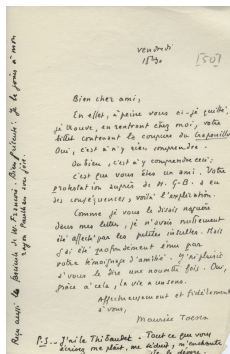 vendredi
18h30
[50]
Bien cher ami,
En effet, à peine vous ai-je quitté,
je trouve, en rentrant chez moi, votre
billet contenant la coupure du Crapouillot.
Oui, c'est à n'y rien comprendre.
Ou bien, c'est à comprendre ceci;
c'est que vous êtes un ami. Votre
protestation auprès de M. G-B. a eu
des conséquences; voilà l'explication.
Comme je vous le disais naguère
dans mes lettres, je n'avais nullement
été affecté par les petites Mais
j'ai été profondément ému par
votre témoignage d'amitié. Il m'a plu
à vous le dire une nouvelle fois. Oui,
grâce à cela, la vie a un sens.
Affectueusement et fidèlement
à vous,
Maurice Toesca
P.S. — J'ai le Thibaudet. Tout ce que vous
écrivez me plaît, me séduit, m'enchante
Reçu aussi le de M. Bien précieux. Je le joins à mon
rayon Paulhan